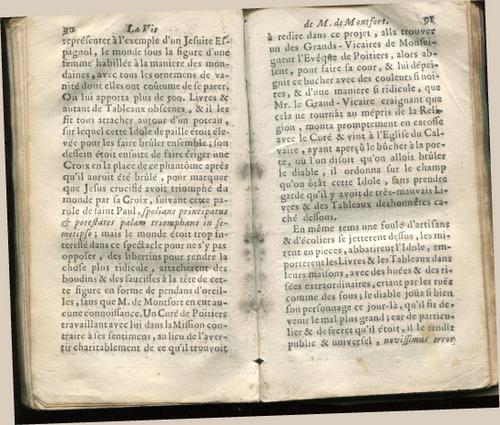 90 La Vie
représenter à l'exemple d'un Jesuite Es-
pagnol, le monde sous la figure d'une
femme habillée à la maniere des mon-
daines, avec tous les ornemens de va-
nité dont elles ont coûtume de se parer.
On lui apporta plus de 500. Livres &
autant de Tableaux obscenes, & il les
fit tous attacher autour d'un poteau,
sur lequel cette Idole de paille étoit éle-
vée pour les faire brûler ensemble; son
dessein étoit ensuite de faire ériger une
Croix en la place de ce phantôme après
qu'il auroit été brûlé, pour marquer
que Jesus crucifié avoit triomphé du
monde par sa Croix, suivant cette pa-
role de saint Paul, spolians principatus
& potestates palam triumphans in se-
metipso; mais le monde étoit trop in-
teressé dans ce spectacle pour ne s'y pas
opposer, des libertins pour rendre la
chose plus ridicule, attacherent des
boudins & des saucisses à la tête de cet-
te figure en forme de pendans d'oreil-
les, sans que M. de Montfort en eut au-
cune connoissance. Un Curé de Poitiers
travaillant avec lui dans la Mission con-
traire à ses sentimens, au lieu de l'aver-
tir charitablement de ce qu'il trouvoit
de M. de Montfort. 91
à redire dans ce projet, alla trouver
un des Grands-Vicaires de Monsei-
gneur l'Evêque de Poitiers, alors ab-
sent, pour faire sa cour, & lui dépei-
gnit ce bucher avec des couleurs si noi-
res, & d'une maniere si ridicule, que
Mr. le Grand-Vicaire craignant que
cela ne tournât au mépris de la Reli-
gion, monta promptement en carosse
avec le Curé & vint à l'Eglise du Cal-
vaire, ayant aperçû le bûcher à la por-
te, où l'on disoit qu'on alloit brûler
le diable, il ordonna sur le champ
qu'on ôtât cette Idole, sans prendre
garde qu'il y avoit de très-mauvais Li-
vres & des Tableaux deshonnêtes ca-
ché dessous.
En même tems une foule d'artisans
& d'écoliers se jetterent dessus, les mi-
rent en pieces, abbatirent l'Idole, em-
porterent les Livres & les Tableaux dans
leurs maisons, avec des huées & des ri-
sées extraordinaires, criant par les rues
comme des fous; le diable joüa si bien
son personnage ce jour-là, qu'il fit de-
venir le mal plus grand; car de particu-
lier & de secret qu'il étoit, il le rendit
public & universel, novissimus error